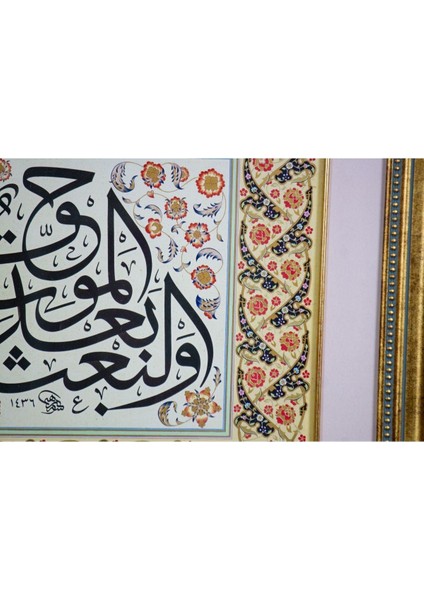 والبعث
بعد
الموت
حق
١٤٣٦